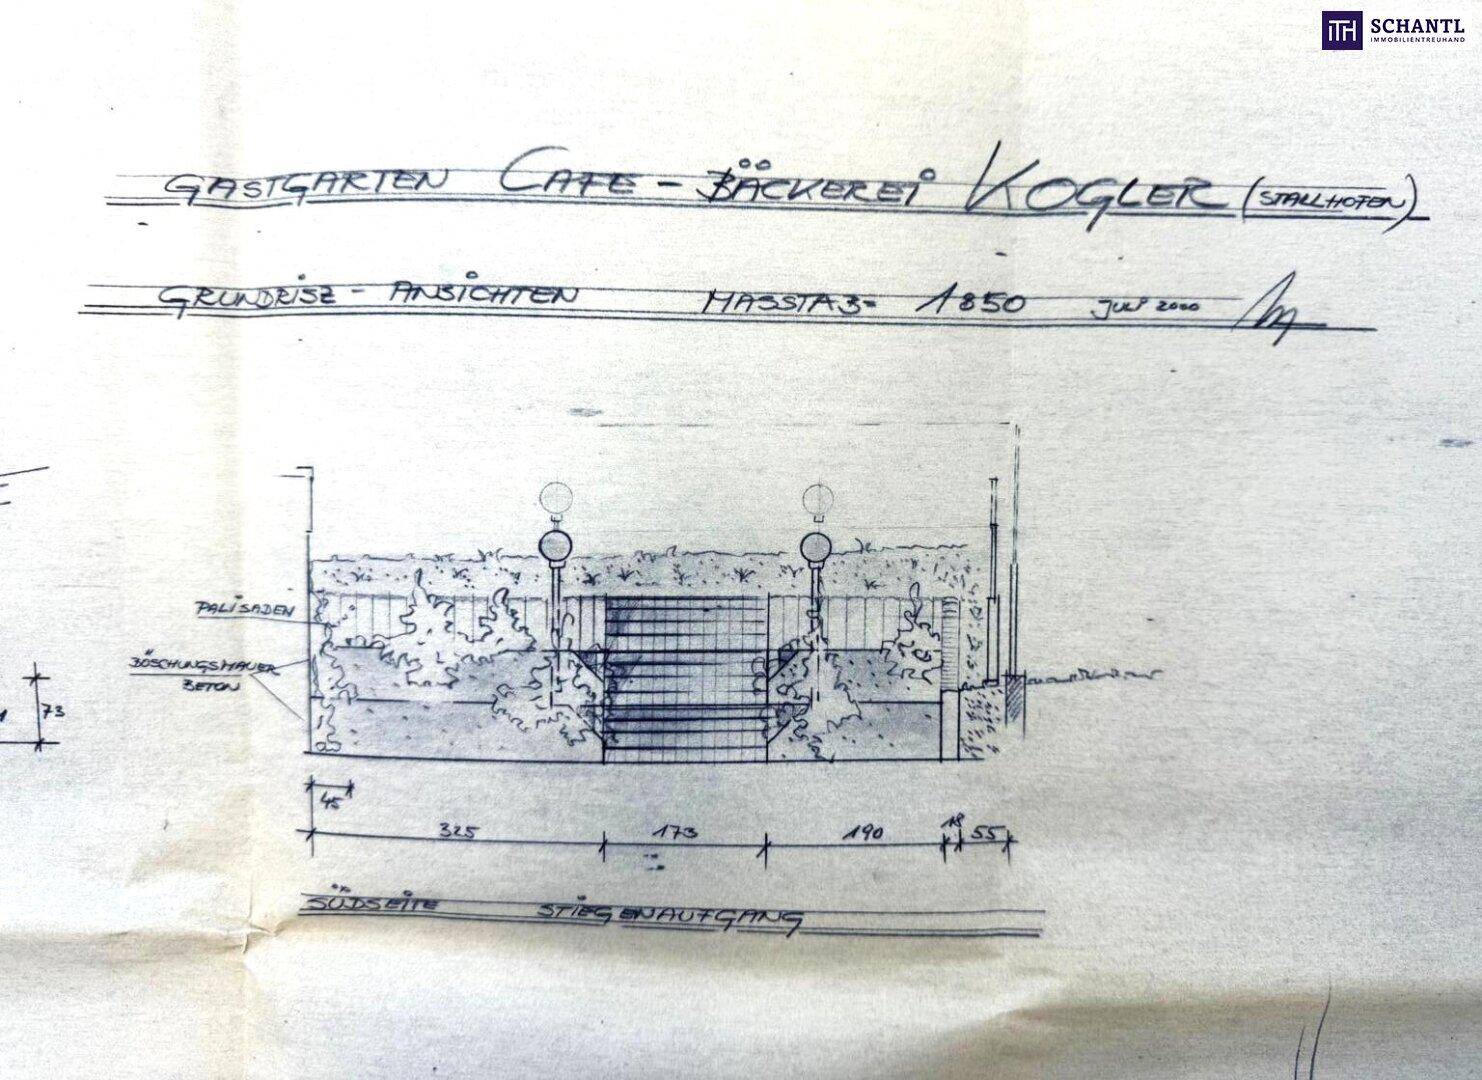 ITH SCHANTL
IMMOBILIENTREUHAND
GASTGARTEN CAFE - BÄCKEREI KOGLER (STALLHOFEN)
GRUNDRISZ - ANSICHTEN MASSTAB- 1:50 JULI 2000
PALISADEN
BÖSCHUNGSMAUER
BETON
73
45
325 173 190 18 55
SÜDSEITE STIEGENAUFGANG